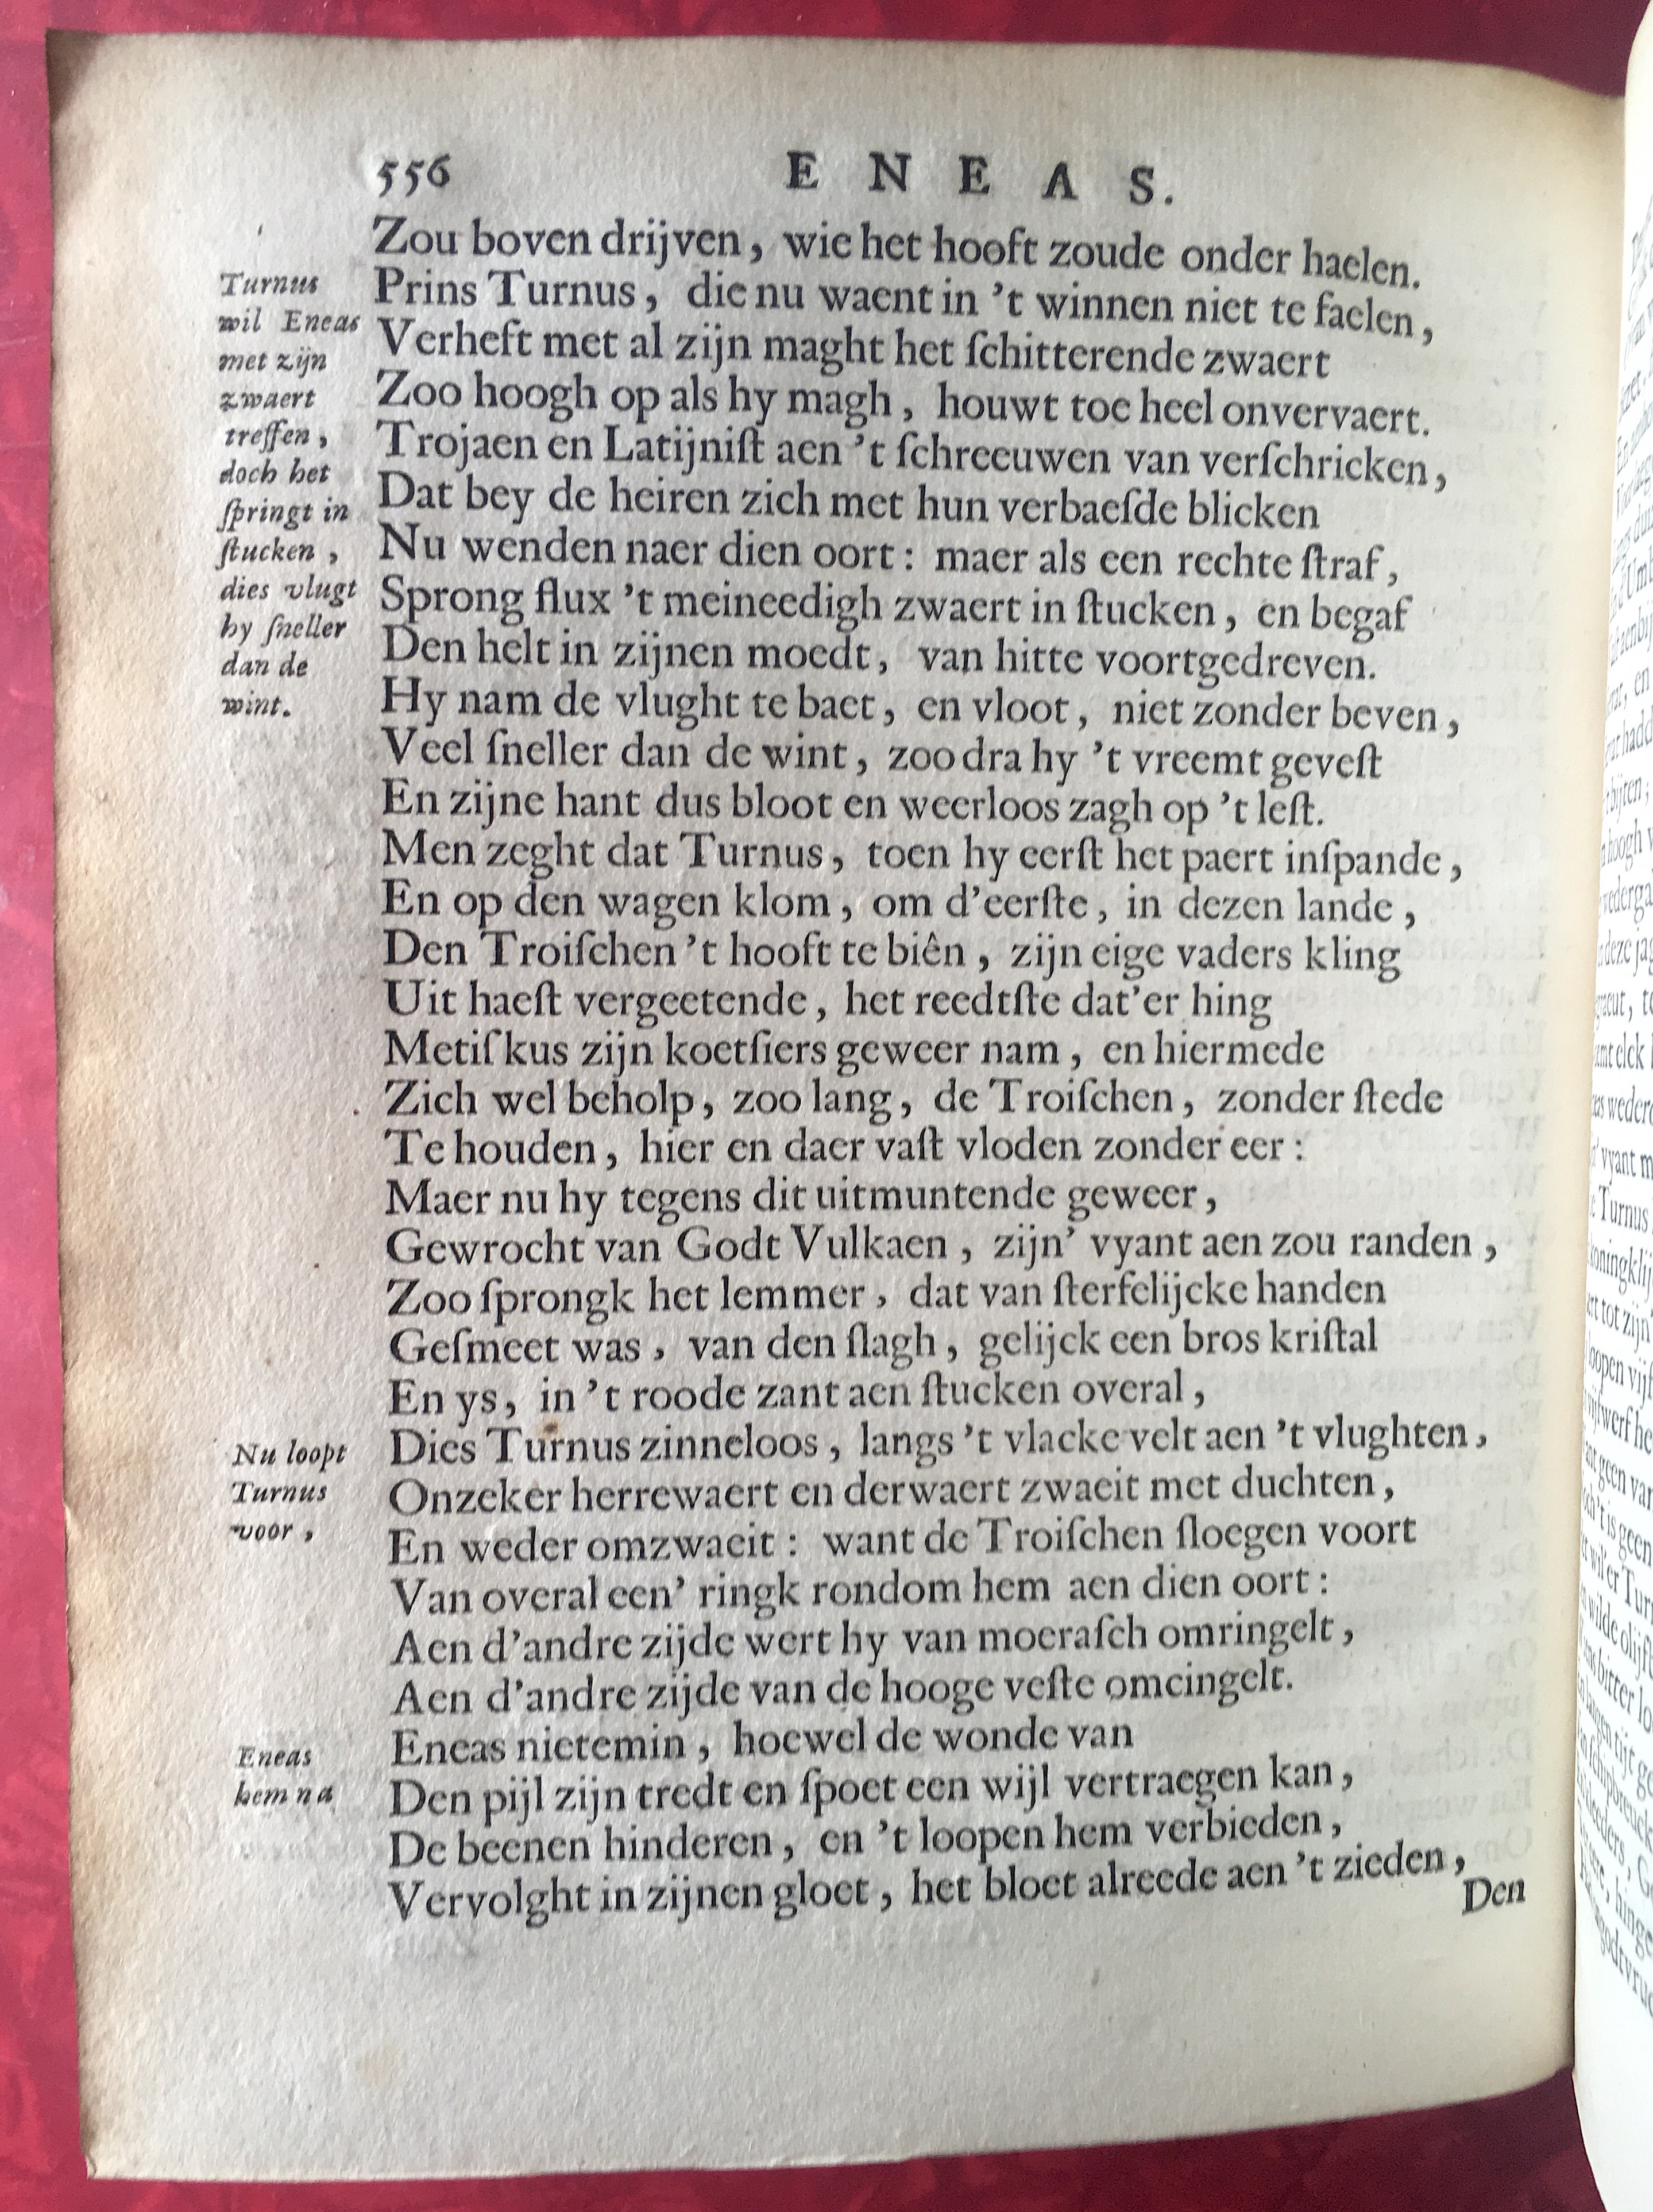 556 ENEAS.
Zou boven drijven, wie het hooft zoude onder haelen.
Prins Turnus, die nu waent in 't winnen niet te faelen,
Verheft met al zijn maght het ſchitterende zwaert
Zoo hoogh op als hy magh, houwt toe heel onvervaert.
Trojaen en Latijniſt aen 't ſchreeuwen van verſchricken,
Dat bey de heiren zich met hun verbaeſde blicken
Nu wenden naer dien oort: maer als een rechte ſtraf,
Sprong flux 't meineedigh zwaert in ſtucken, en begaf
Den helt in zijnen moedt, van hitte voortgedreven.
Hy nam de vlught te baet, en vloot, niet zonder beven,
Veel ſneller dan de wint, zoo dra hy 't vreemt geveſt
En zijne hant dus bloot en weerloos zagh op 't leſt.
Men zeght dat Turnus, toen hy eerſt het paert inſpande,
En op den wagen klom, om d'eerſte, in dezen lande,
Den Troiſchen 't hooft te biên, zijn eige vaders kling
Uit haeſt vergeetende, het reedtſte dat'er hing
Metiſkus zijn koetſiers geweer nam, en hiermede
Zich wel beholp, zoo lang, de Troiſchen, zonder ſtede
Te houden, hier en daer vaſt vloden zonder eer:
Maer nu hy tegens dit uitmuntende geweer,
Gewrocht van Godt Vulkaen, zijn' vyant aen zou randen,
Zoo ſprongk het lemmer, dat van ſterfelijcke handen
Geſmeet was, van den ſlagh, gelijck een bros kriſtal
En ys, in 't roode zant aen ſtucken overal,
Dies Turnus zinneloos, langs 't vlacke velt aen 't vlughten,
Onzeker herrewaert en derwaert zwaeit met duchten,
En weder omzwaeit: want de Troiſchen ſloegen voort
Van overal een' ringk rondom hem aen dien oort:
Aen d'andre zijde wert hy van moeraſch omringelt,
Aen d'andre zijde van de hooge veſte omcingelt.
Eneas nietemin, hoewel de wonde van
Den pijl zijn tredt en ſpoet een wijl vertraegen kan,
De beenen hinderen, en 't loopen hem verbieden,
Vervolght in zijnen gloet, het bloet alreede aen 't zieden,
Den
Turnus
wil Eneas
met zijn
zwaert
treffen,
doch het
ſpringt in
ſtucken,
dies vlugt
hy ſneller
dan de
wint.
Nu loopt
Turnus
voor,
Eneas
hem na